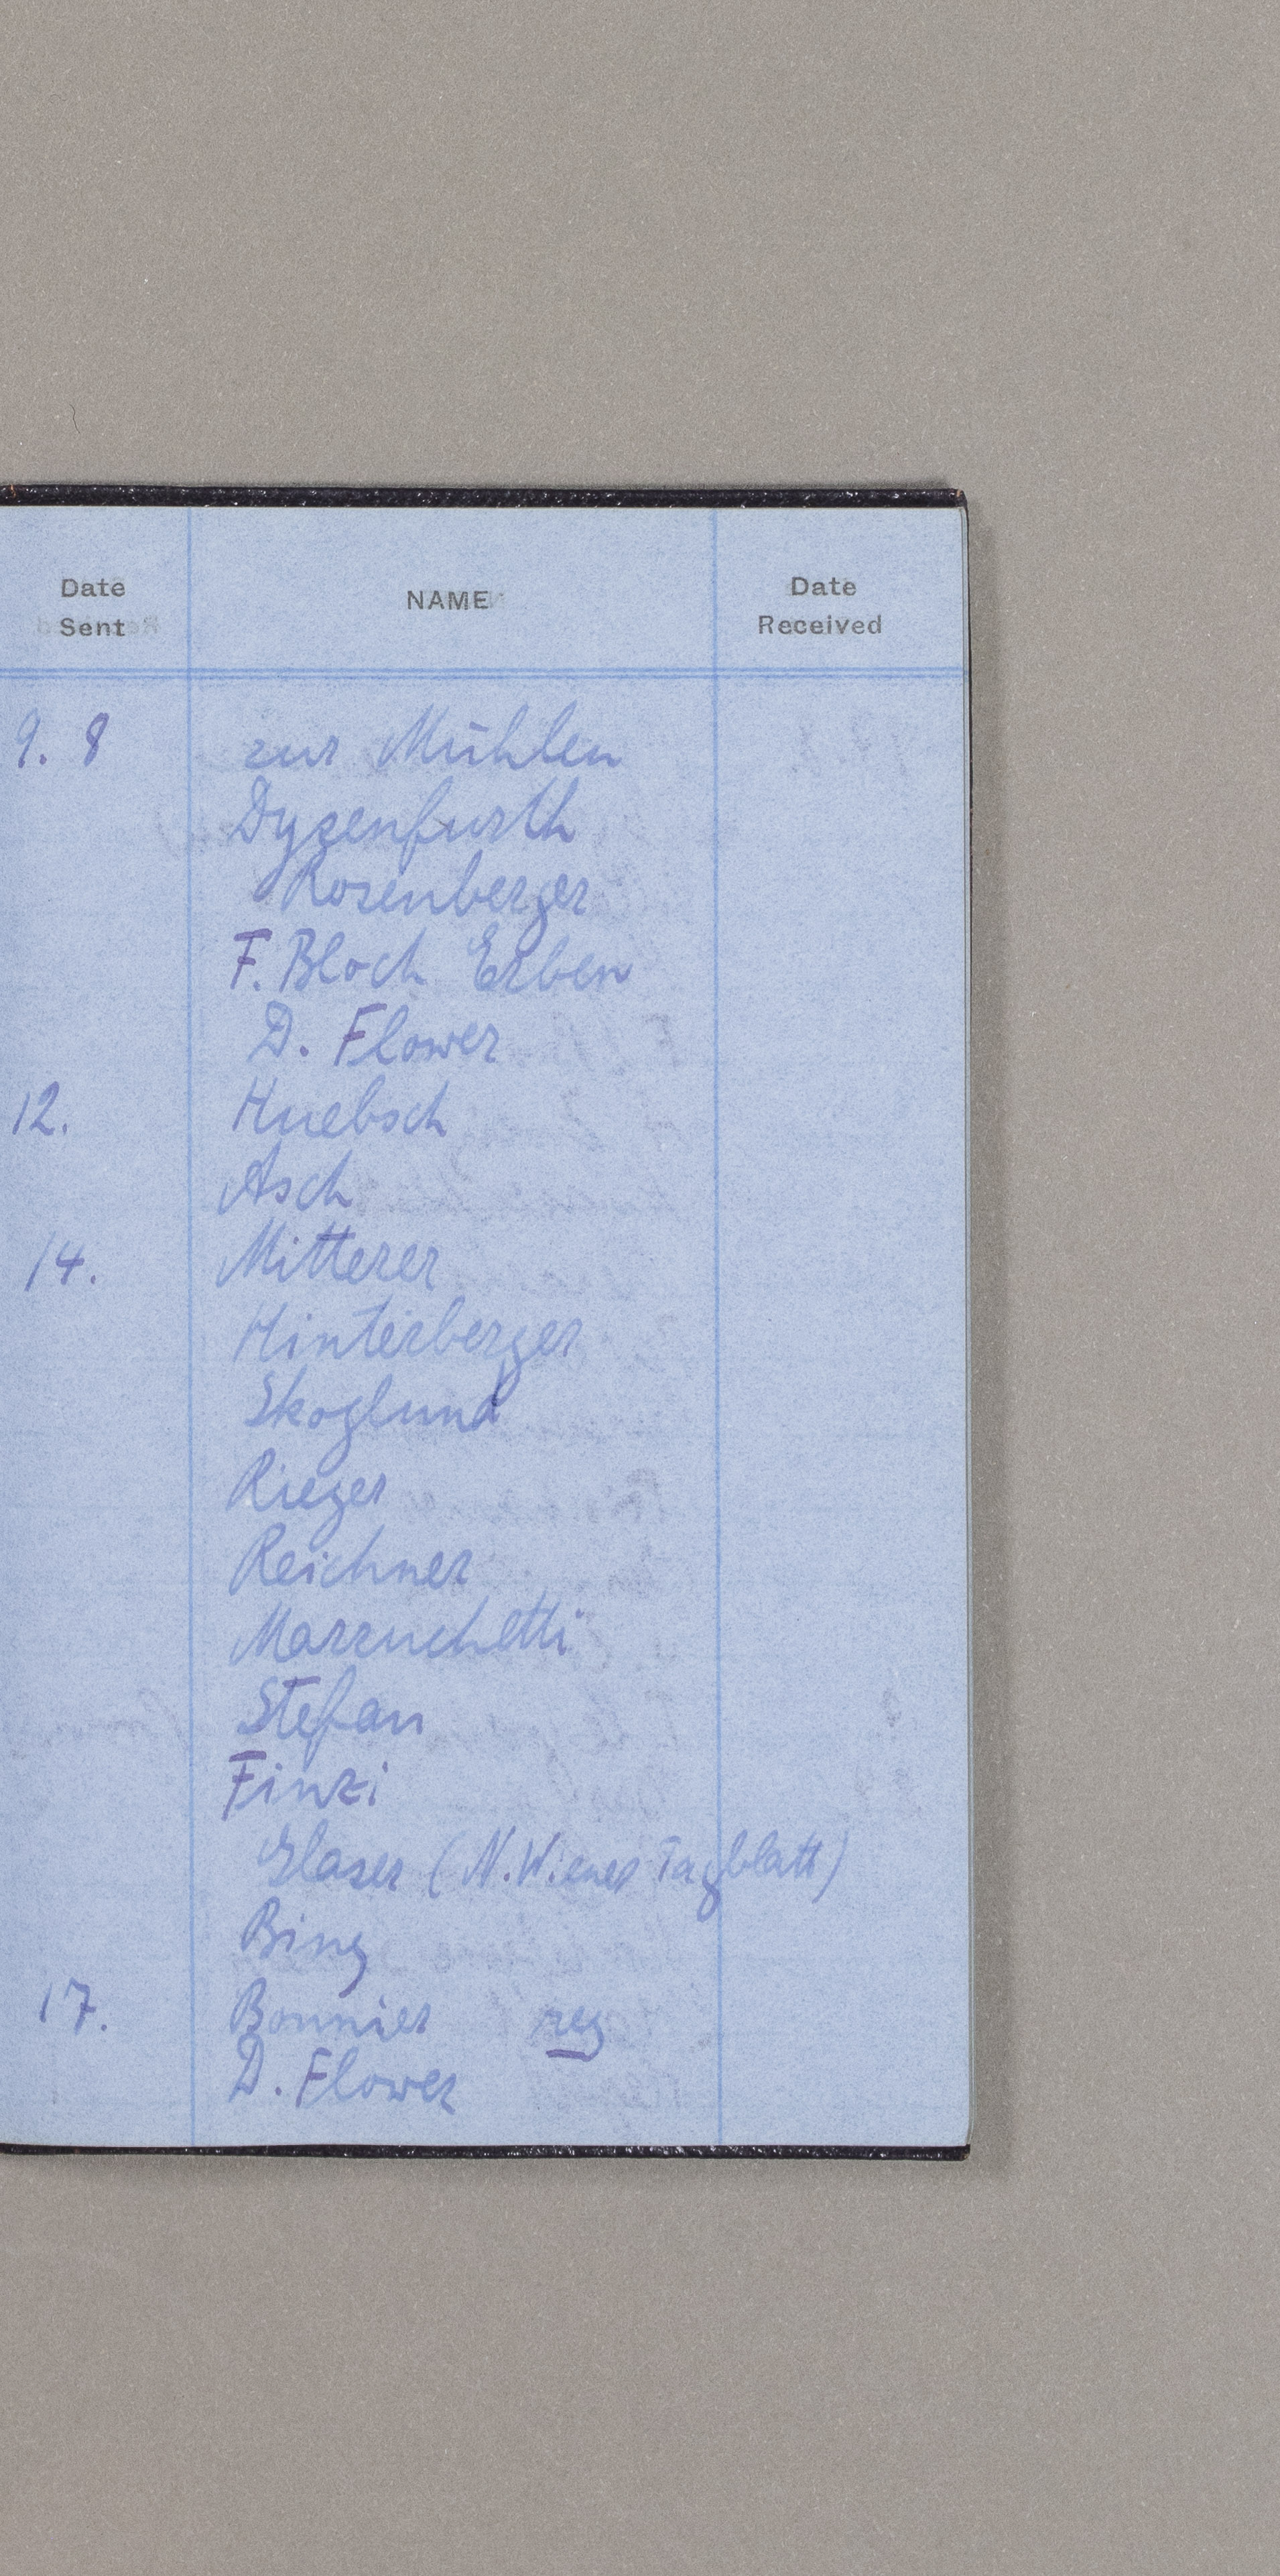 Date Sent NAME Date Received
9. 8 zur Mühlen
Dyzenfurth
Rosenberger
F. Bloch Erben
D. Flower
12. Huebsch
Asch
14. Mitterer
Hinterberger
Skoglund
Rieger
Reichner
Marruchetti
Stefan
Finzi
Glaser (N. Wiener Tagblatt)
Bing
17. Bonnier reg
D. Flower